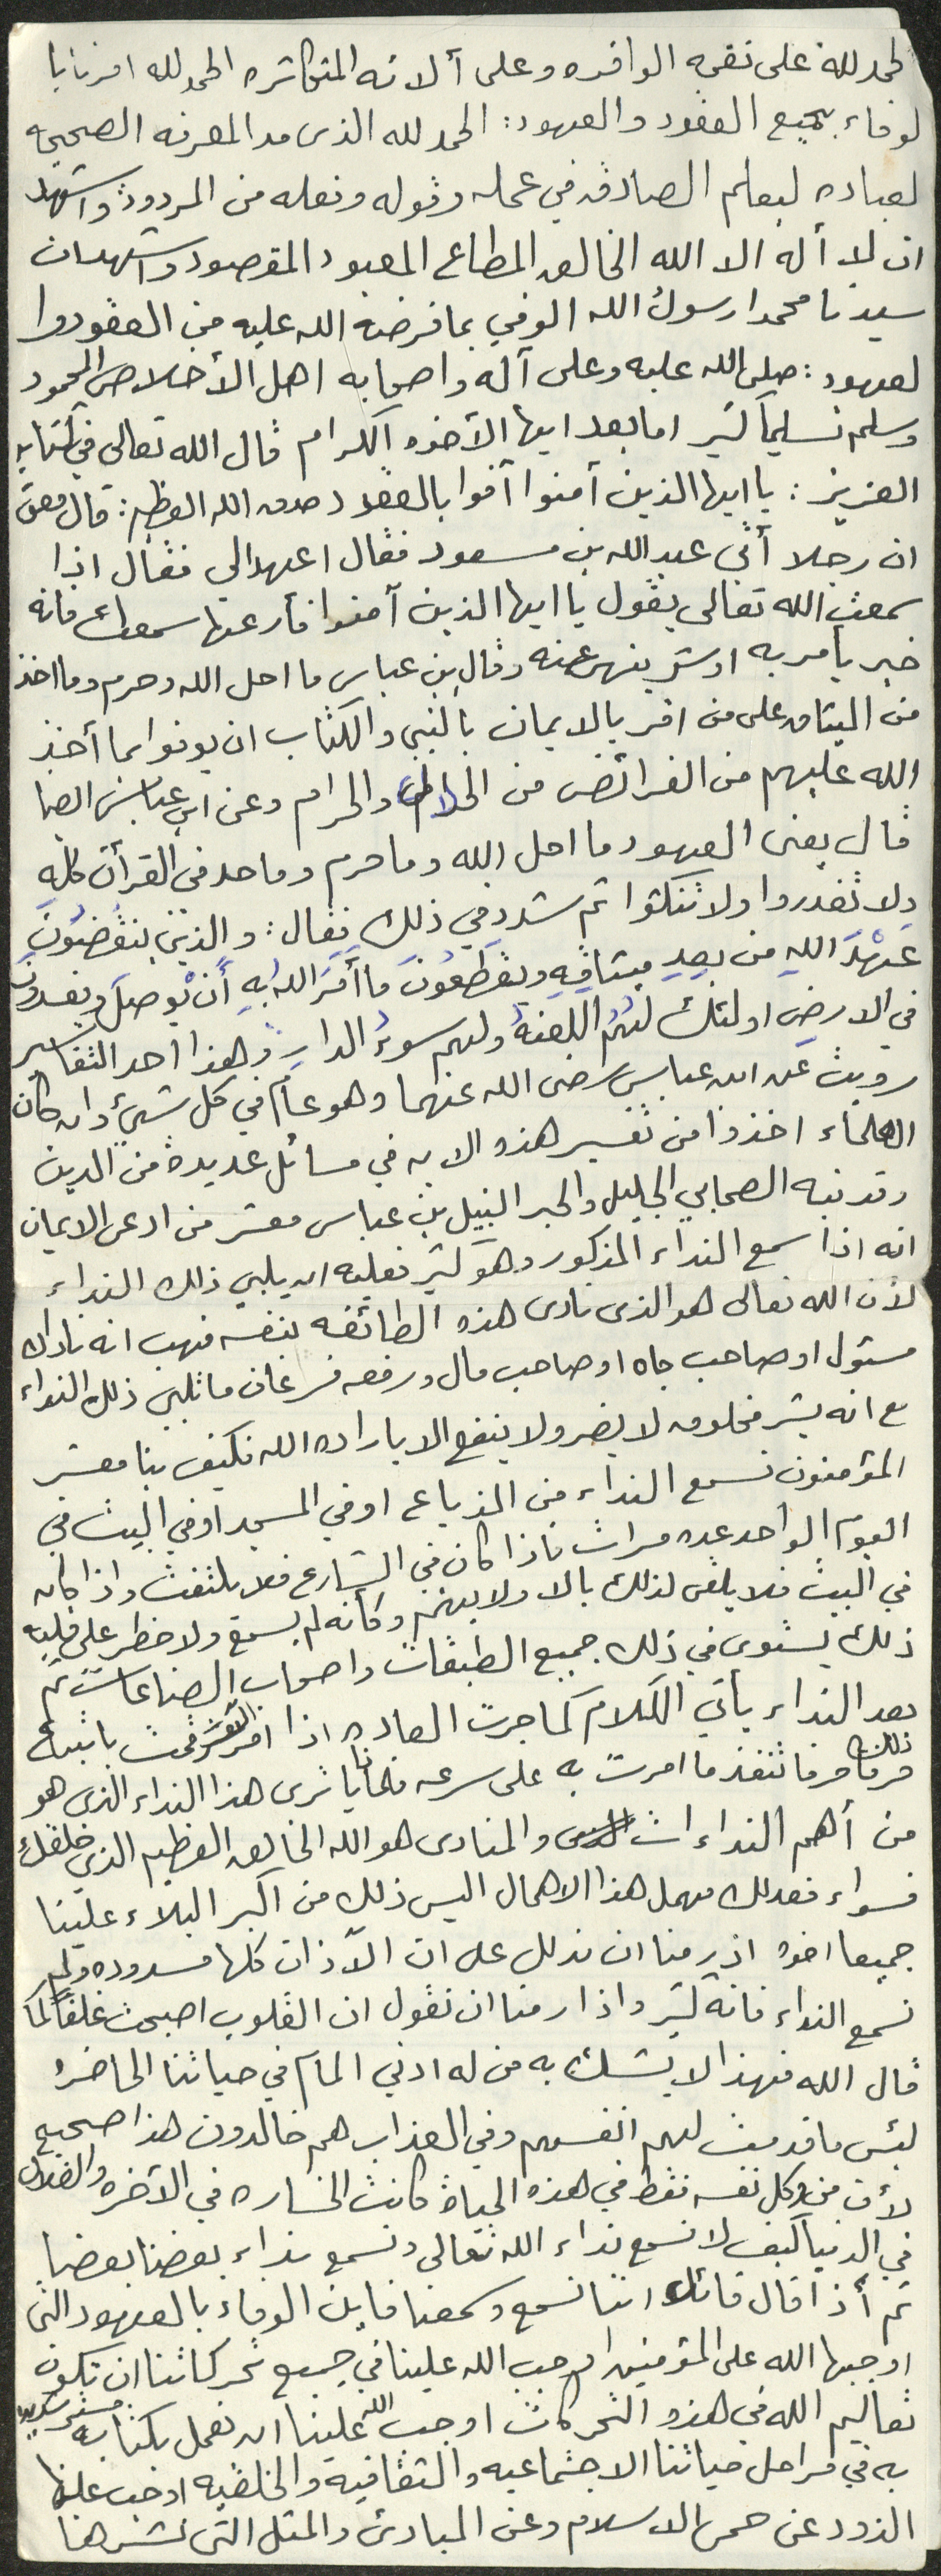 الحمد لله على نعمه الوافره وعلى ألائه المتكاثره الحمد لله امرنا با
لوفاء بجميع العقود والعهود: الحمد لله الذى مد المعرفه الصحيحه
لعباده ليعلم الصادق في عمله وقوله وفعله من المردود واشهد
ان لا أله الا الله الخالق المطاع المعبود المقصود واشهد ان
سيدنا محمدا رسول الله الوفي بما فرضه الله عليه من العقود وا
لعهود: صلى الله عليه وعلى آله واصحابه اهل الأخلاص المحمود
وسلم تسليماً كثير اما بعد ايها الآخوه الكرام قال الله تعالى في كتابه
العزيز: يا ايها الذين آمنوا آفوا بالعقود صدق الله العظيم: قال معن
ان رجلا أتى عبد الله بن مسعود فقال اعهد الي فقال اذا
سمعت الله تعالى يقول يا ايها الذين آمنوا فأرعها سمعك فانه
خير يأمر به او شر ينهى عنه وقال بن عباس ما احل الله وحرم وما اخذ
من الميثاق على من اقر بالايمان بالنبي والكتاب ان يوفوا بما أخذ
الله عليهم من الفرائض من الحلال والحرام وعن ابي عباس ايضا
قال يعنى العهود ما احل الله وما حرم وما حد في القرأن كلهِ
ولا تغدروا ولا تنكثوا ثم شدد في ذلك فقال: والذين ينقُضوُنَ
عَهْدَ اللهِ من بعدِ ميثاقِهِ ويقطَعُونَ ما أمَرَ اللهُ بهِ أنْ يُوصلَ ويفسدون
في الارضِ اولئك لهُم اللعنهُ ولهم سوءُ الدارِ وهذا احد التفاسير
رويت عن ابن عباس رضى الله عنهما وهو عام في كل شيئ وان كان
العلماء اخذوا من تفسير هذه الايه في مسائل عديدة من الدين
وقد نبه الصحابي الجليل والحبر النبيل بن عباس معشر من ادعى الايمان
انه اذا سمع النداء المذكور وهو كثير فعليه ان يلبي ذلك النداء
لأن الله تعالى هو الذى نادى هذه الطائفه بنفسه فهب انه ناداك
مسئول او صاحب جاه او صاحب مال ورفعه فسرعان ما تلبى ذلك النداء
مع انه بشر مخلوق لا يضر ولا ينفع الا باراده الله فكيف بنا معشر
المؤمنون نسمع النداء من المذياع او في المسجد او في البيت في
اليوم الواحد عده مرات فاذا كان في الشارع فلا يلتفت واذا كان
في البيت فلا يلقى لذلك بالا ولا يهتم وكأنه لم يسمع ولا خطر على قلبه
ذلك يستوى في ذلك جميع الطبقات واصحاب الصناعات ثم
بعد النداء يأتي الكلام كما جرت العاده اذا امر البشر قمت باتباع ذلك
حرفا حرفا تنفذ ما امرت به على سرعه فلماذا يا ترى هذا النداء الذى هو
من أهم النداءات والمنادى هو الله الخالق العظيم الذى خلقك
فسواء فعدلك مهمل هذا الاهمال اليس ذلك من اكبر البلاء علينا
جميعا اخوه اذ يرمنا ان ندلل على ان الآذان كلها مسدوده ولم
نسمع النداء فانه كثير واذا رمنا ان نقول ان القلوب اصبحت غلفاً كما
قال الله فهذا لا يشك به من له ادنى المام في حياتنا الحاضره
لبئس ما قدمت لهم انفسهم وفي العذاب هم خالدون هذا صحيح
لأن من وكل نفسه فقط في هذه الحياة كانت الخساره في الآخره والضلال
في الدنيا كيف لا نسمع نداء الله تعالى ونسمع نداء بعضنا بعضا
ثم أذا قال قائل اننا نسمع وسمعنا فاين الوفاء بالعهود التى
اوجبها الله على المؤمنين اوجب الله علينا في جميع تحركاتنا ان تكون
تعاليم الله في هذه التحركات اوجب الله علينا ان نعمل بكتابه مسترشدين
به في مراحل حياتنا الاجتماعيه والثقافيه والخلقيه اوجب علينا
الذود عن حمى الاسلام وعن المبادئ والمثل التى نشرها